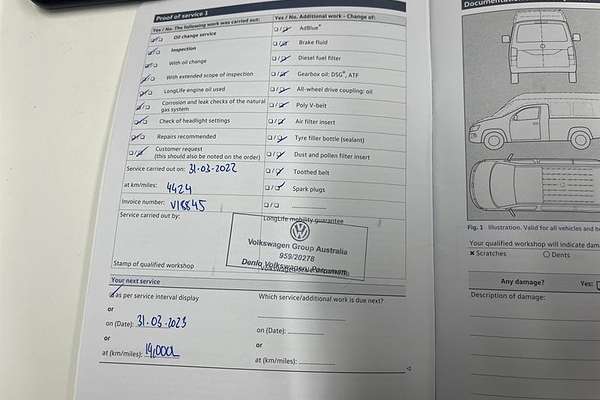 Proof of service 1
Documentation
Yes / No. The following work was carried out:
Oil change service
Inspection
With oil change
With extended scope of inspection
LongLife engine oil used
Corrosion and leak checks of the natural
gas system
Check of headlight settings
Repairs recommended
Customer request
(this should also be noted on the order)
Service carried out on: 31-03-2022
at km/miles: 4424
Invoice number: V18845
Service carried out by:
Stamp of qualified workshop
Yes / No. Additional work – Change of:
AdBlue®
Brake fluid
Diesel fuel filter
Gearbox oil: DSG®, ATF
All-wheel drive coupling: oil
Poly V-belt
Air filter insert
Tyre filler bottle (sealant)
Dust and pollen filter insert
Toothed belt
Spark plugs
LongLife mobility guarantee
Volkswagen Group Australia
959/20278
Volkswagen
Your next service
as per service interval display
or
on (Date): 31-03-2023
or
at (km/miles): 19,000
Which service/additional work is due next?
on (Date):
or
at (km/miles):
Fig. 1 Illustration. Valid for all vehicles and
Your qualified workshop will indicate
Scratches
Dents
Any damage?
Yes:
Description of damage: